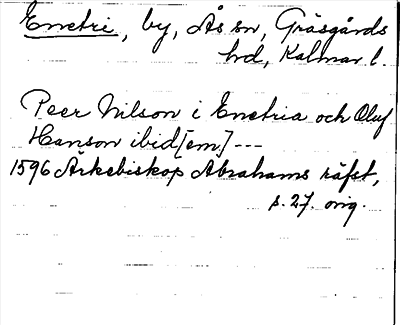 Enetri, by, Ås sn, Gräsgårds
hd, Kalmar l.
Peer Nilson i Enetria och Oluf
Hanson ibid[em] ---
1596 Ärkebiskop Abrahams räfst,
s. 27. orig.